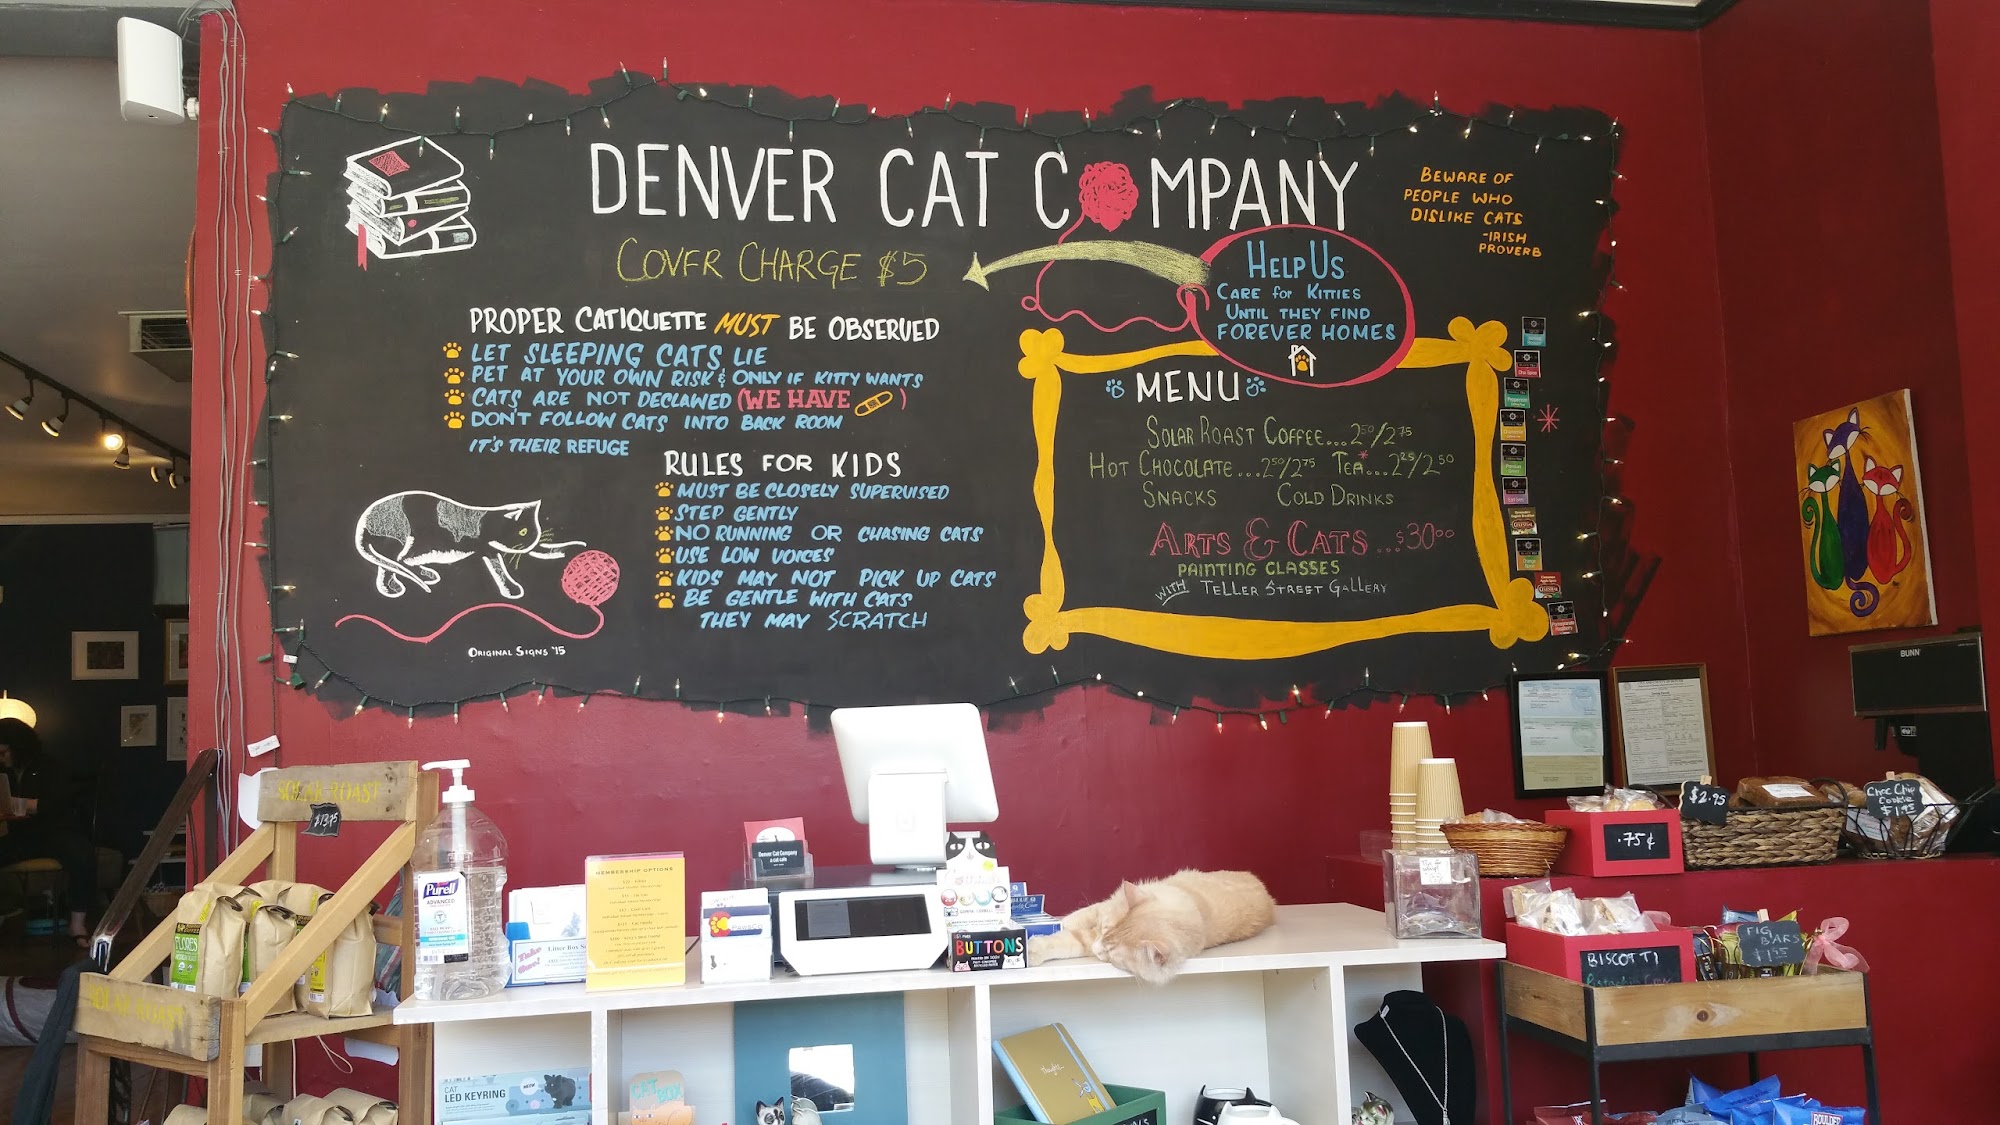 DENVER CAT COMPANY
COVER CHARGE $5
BEWARE OF
PEOPLE WHO
DISLIKE CATS
-IRISH
PROVERB
HELP US
CARE for KITTIES
UNTIL THEY FIND
FOREVER HOMES
PROPER CATIQUETTE MUST BE OBSERVED
LET SLEEPING CATS LIE
PET AT YOUR OWN RISK & ONLY IF KITTY WANTS
CATS ARE NOT DECLAWED (WE HAVE )
DON'T FOLLOW CATS INTO BACK ROOM
IT'S THEIR REFUGE
RULES FOR KIDS
MUST BE CLOSELY SUPERVISED
STEP GENTLY
NO RUNNING OR CHASING CATS
USE LOW VOICES
KIDS MAY NOT PICK UP CATS
BE GENTLE WITH CATS
THEY MAY SCRATCH
ORIGINAL SIGNS '15
MENU
SOLAR ROAST COFFEE...250/275
HOT CHOCOLATE...250/275 TEA*...225/250
SNACKS COLD DRINKS
ARTS & CATS...$3000
PAINTING CLASSES
WITH TELLER STREET GALLERY
*
BUNN
SOLAR ROAST
$13.75
SOLAR ROAST
FLORES
Purell
ADVANCED
MEMBERSHIP OPTIONS
Denver Cat Company
BUTTONS
$2.95
Choc Chip
Cookie
$1.95
.75¢
BISCOTTI
FIG
BARS
$1.75
CAT
LED KEYRING
CAT
BOX
BOULDER